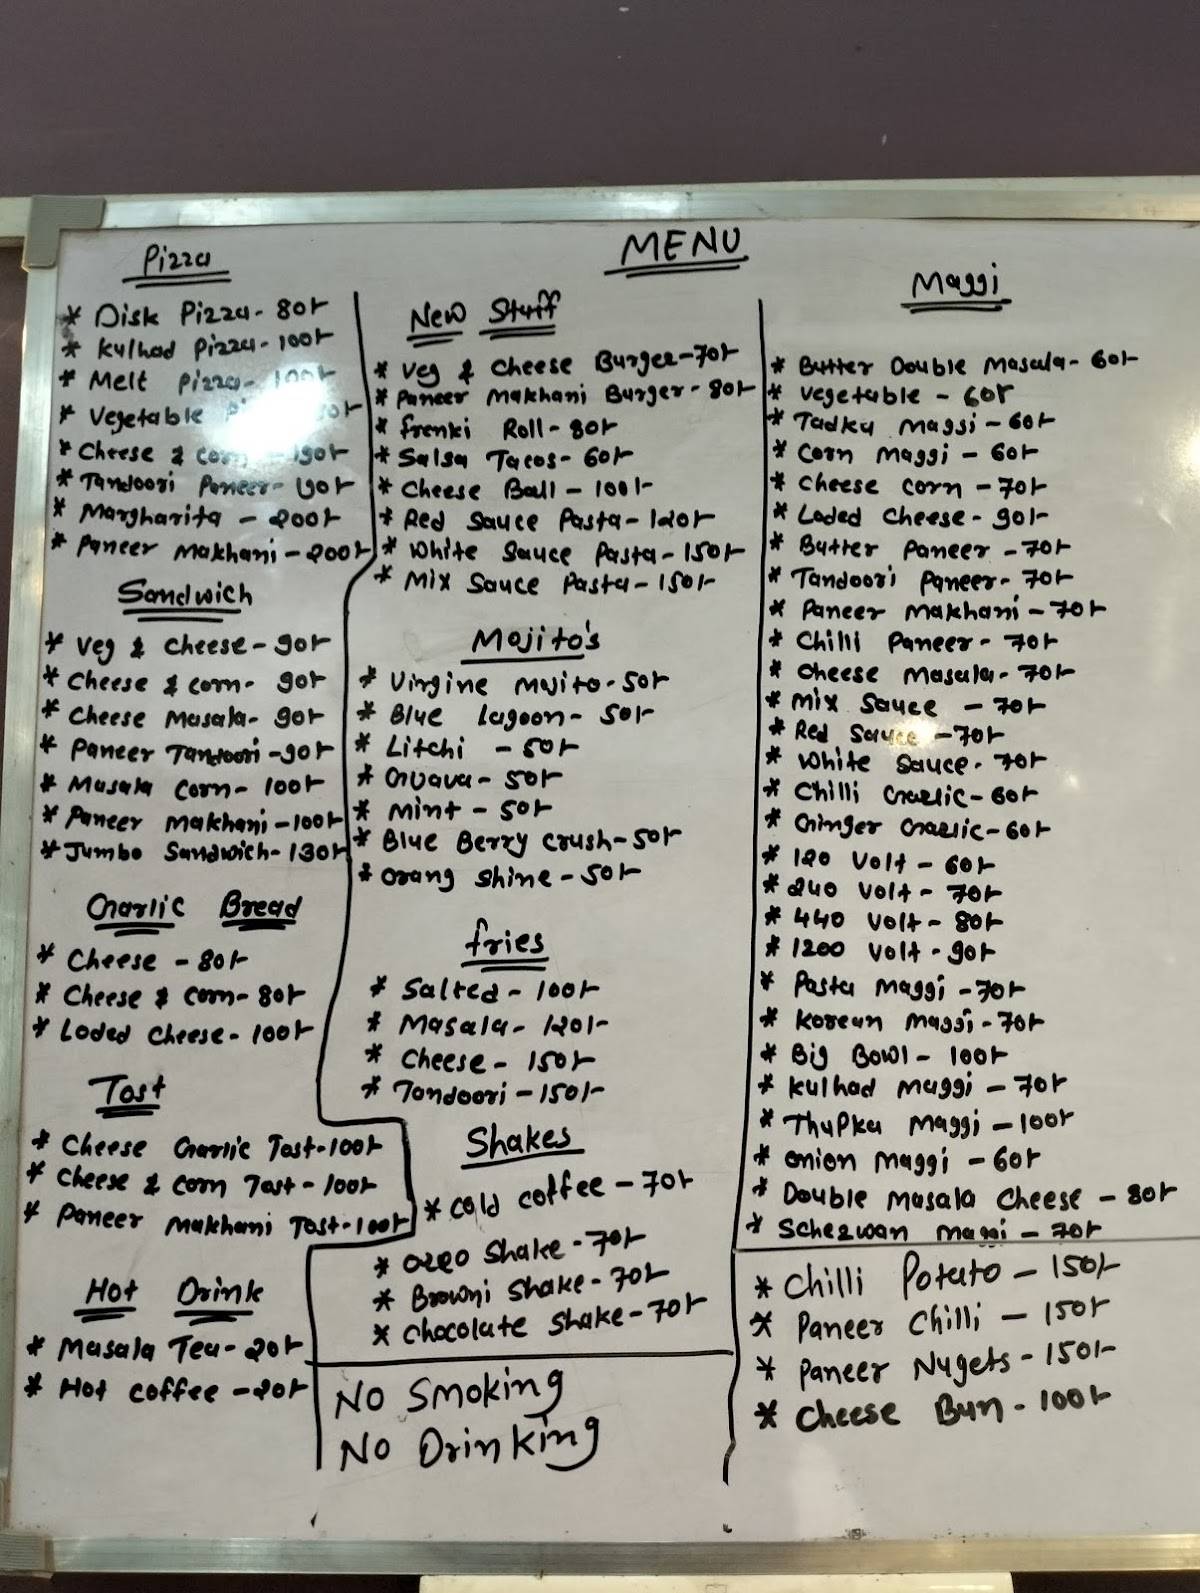 MENU
Pizza
* Disk Pizza - 80/-
* Kulhad Pizza - 100/-
* Melt Pizza - 100/-
* Vegetable
* Cheese & Corn
* Tandoori Paneer -
* Margharita - 200/-
* Paneer Makhani - 200/-
Sandwich
* Veg & Cheese - 90/-
* Cheese & Corn - 90/-
* Cheese Masala - 90/-
* Paneer Tandoori - 90/-
* Masala Corn - 100/-
* Paneer Makhani - 100/-
* Jumbo Sandwich - 130/-
Garlic Bread
* Cheese - 80/-
* Cheese & Corn - 80/-
* Loded Cheese - 100/-
Tost
* Cheese Garlic Tost - 100/-
* Cheese & Corn Tost - 100/-
* Paneer Makhani Tost - 100/-
Hot Drink
* Masala Tea - 20/-
* Hot Coffee - 20/-
New Stuff
* Veg & Cheese Burger - 70/-
* Paneer Makhani Burger - 80/-
* Frenki Roll - 80/-
* Salsa Tacos - 60/-
* Cheese Ball - 100/-
* Red Sauce Pasta - 120/-
* White Sauce Pasta - 150/-
* Mix Sauce Pasta - 150/-
Mojito's
* Virgine Mojito - 50/-
* Blue Lagoon - 50/-
* Litchi - 50/-
* Guava - 50/-
* Mint - 50/-
* Blue Berry Crush - 50/-
* Orang Shine - 50/-
Fries
* Salted - 100/-
* Masala - 120/-
* Cheese - 150/-
* Tandoori - 150/-
Shakes
* Cold Coffee - 70/-
* Oreo Shake - 70/-
* Browni Shake - 70/-
* Chocolate Shake - 70/-
No Smoking
No Drinking
Maggi
* Butter Double Masala - 60/-
* Vegetable - 60/-
* Tadka Maggi - 60/-
* Corn Maggi - 60/-
* Cheese Corn - 70/-
* Loded Cheese - 90/-
* Butter Paneer - 70/-
* Tandoori Paneer - 70/-
* Paneer Makhani - 70/-
* Chilli Paneer - 70/-
* Cheese Masala - 70/-
* Mix Sauce - 70/-
* Red Sauce - 70/-
* White Sauce - 70/-
* Chilli Garlic - 60/-
* Ginger Garlic - 60/-
* 120 Volt - 60/-
* 240 Volt - 70/-
* 440 Volt - 80/-
* 1200 Volt - 90/-
* Pasta Maggi - 70/-
* Korean Maggi - 70/-
* Big Bowl - 100/-
* Kulhad Maggi - 70/-
* Thupka Maggi - 100/-
* Onion Maggi - 60/-
* Double Masala Cheese - 80/-
* Schezwan Maggi - 70/-
* Chilli Potato - 150/-
* Paneer Chilli - 150/-
* Paneer Nugets - 150/-
* Cheese Bun - 100/-